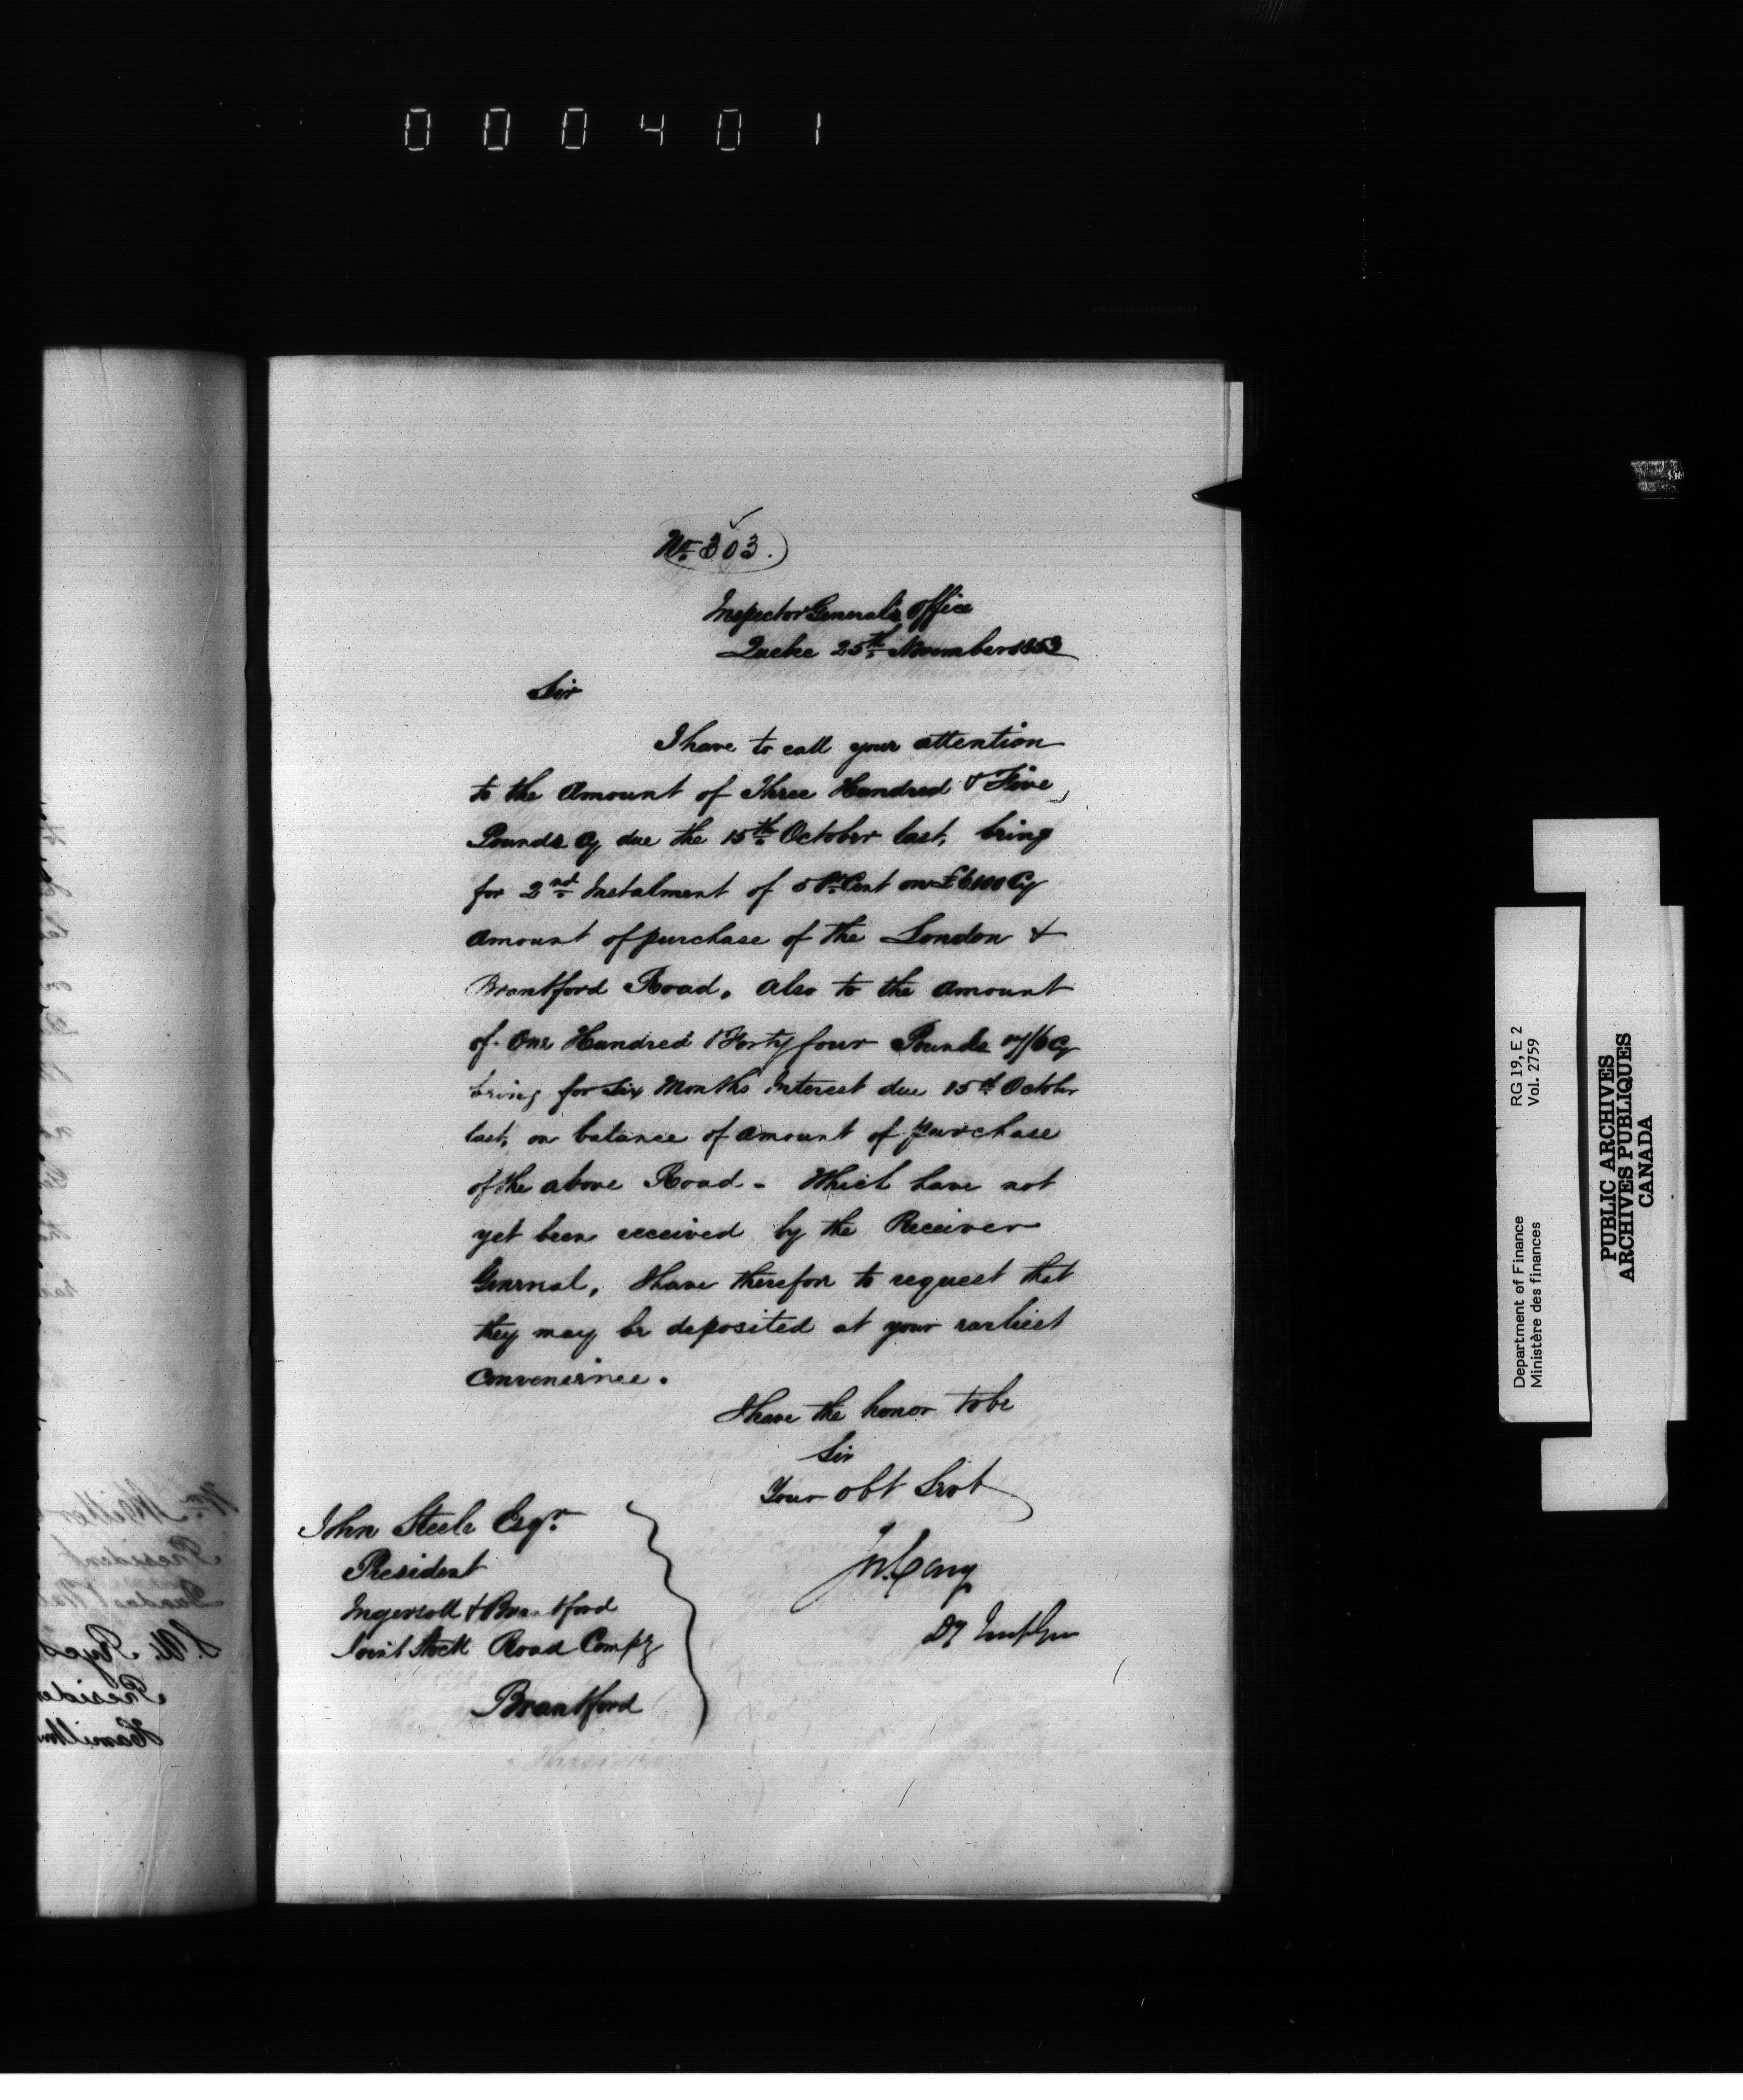 000401
No. 303.
Inspector General's Office
Quebec 25th November 1853
Sir
I have to call your attention
to the Amount of Three Hundred & Five
Pounds Cy due the 15th October last, being
for 2nd Instalment of 5 Pr Cent on £6100 Cy
amount of purchase of the London &
Brantford Road. Also to the amount
of One Hundred & Forty four Pounds 17/6 Cy
being for Six Months Interest due 15th October
last, on balance of amount of purchase
of the above Road - Which have not
yet been received by the Receiver
General, I have therefore to request that
they may be deposited at your earliest
convenience.
I have the honor to be
Sir
Your obt Servt
Jos. Cary
Dy Insp Gen
John Steele Esqr.
President
Ingersoll & Brantford
Joint Stock Road Compy
Brantford
RG 19, E 2
Vol. 2759
Department of Finance
Ministère des finances
PUBLIC ARCHIVES
ARCHIVES PUBLIQUES
CANADA